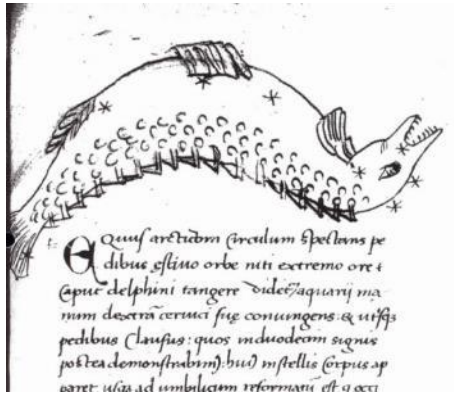 EQuus arcticum Circulum spectans pe
dibus estivo orbe niti extremo ore &
Caput delphini tangere videt aquarij ma
num dextrā cervici sue conivngens: &
pedibus Clausus: quos in duodecim signis
postea demonstrabim: in stellis Corpus ap
paret usq ad umbilicum reformatū est q occi